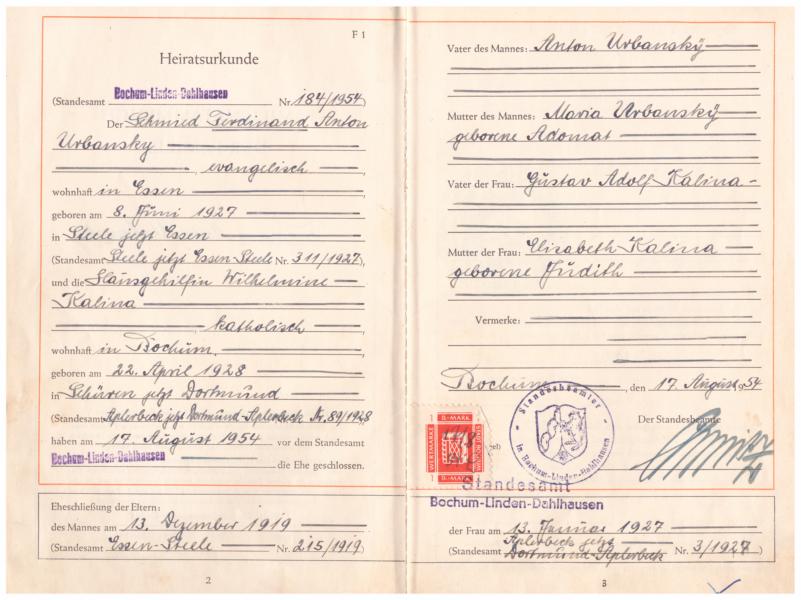 F 1
Heiratsurkunde
Bochum-Linden-Dahlhausen
(Standesamt Nr. 184/1954)
Der Schmied Ferdinand Anton
Urbansky
, evangelisch
wohnhaft in Essen
geboren am 8. Juni 1927
in Steele jetzt Essen
(Standesamt Steele jetzt Essen-Steele Nr. 311/1927),
und die Hausgehilfin Wilhelmine
Kalina
, katholisch
wohnhaft in Bochum,
geboren am 22. April 1928
in Schüren jetzt Dortmund
(Standesamt Aplerbeck jetzt Dortmund-Aplerbeck Nr. 89/1928
haben am 17. August 1954 vor dem Standesamt
Bochum-Linden-Dahlhausen
die Ehe geschlossen.
Eheschließung der Eltern:
des Mannes am 13. Dezember 1919
(Standesamt Essen-Steele Nr. 215/1919)
2
Vater des Mannes: Anton Urbansky
Mutter des Mannes: Maria Urbansky
geborene Adomat
Vater der Frau: Gustav Adolf Kalina
Mutter der Frau: Elisabeth Kalina
geborene Judith
Vermerke:
Bochum, den 17. August 54
Der Standesbeamte
Standesbeamter
in Bochum-Linden-Dahlhausen
WERTMARKE
D.-MARK
STADT BOCHUM
D.-MARK
Standesamt
Bochum-Linden-Dahlhausen
der Frau am 13. Januar 1927
Aplerbeck jetzt
(Standesamt Dortmund-Aplerbeck Nr. 3/1927
3